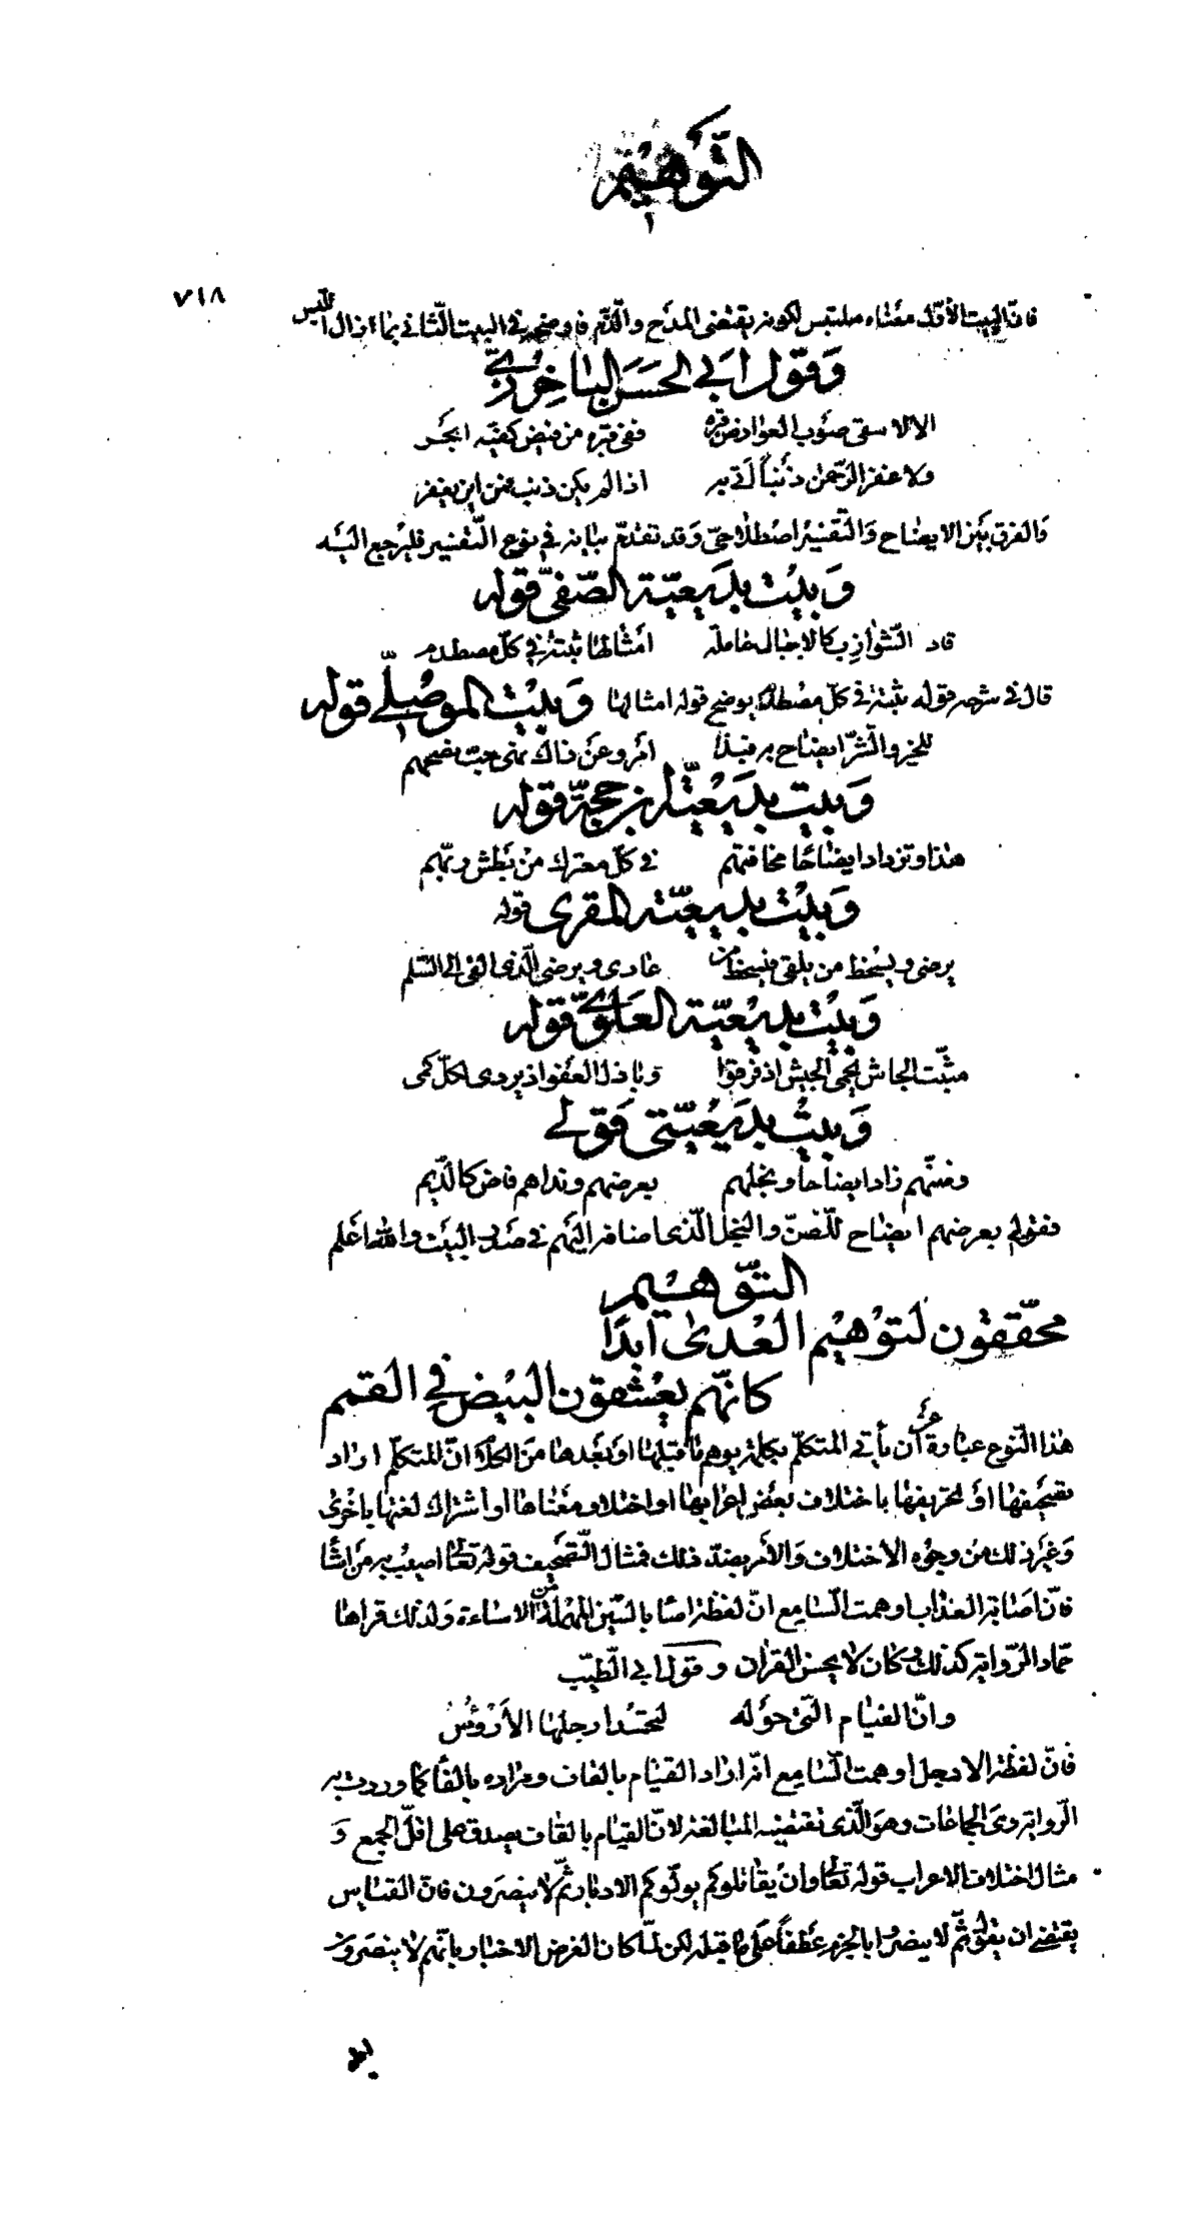 التَّوهِيم
٧١٨
فانّ البيت الأوّل معناه ملتبس لكونه يقتضى المدح والذّم فاوضحه فى البيت الثّانى بما ازال اللبس
وَقول ابى الحَسَن الباخرزى
الا لا سقى صوب العوادض قبره ففى قبره من فيض كفيّه ابحر
ولا غفر الرّحمن ذنباً لقبره اذا لم يكن ذنب فمن اين يغفر
وَالفرق بَين الايضاح وَالتّفسير اصطلاحىّ وَقد تقدّم بيانه فى نوع التّفسير فليرجع اليَه
وَبيْت بديعيّة الصّفىّ قوله
قاد الشّوازب كالاجبال حاملة امثالها ثبتة فى كلّ مصطدم
قال فى شرحه فقوله ثبتة فى كلّ مصطدم يوضح قوله امثالها وَبيْت الموصلى قوله
للخير والشّر ايضاح به فبلا امر وعن ذاك نهى حيث نصحهم
وَبيت بديعيّة ابن حجّة قوله
هذا وتزداد ايضاحًا مخافتهم فى كلّ معترك من بطش ربّهم
وَبيْت بديعيّة المقرى قوله
يرضى ويسخط من يلقى فيسخط من عادى ويرضى الّذى القى الى السّلم
وَبيْت بديعيّة العلوىّ قوله
مثبّت الجاش يحمى الجيش اذ فرقوا وباذل العفو اذ يردى لكلّ كمى
وَبيْت بديعيّتى قولى
وضنّهم زاد ايضاحا وبخلهم بعرضهم ونداهم فاض كالدّيم
فقولى بعرضهم ايضاح للضنّ والبخل الّذى اضافه اليهم فى صدر البيت والله اعلم
التّوهيم
محقّقون لتوْهيم العُدى ابَدًا
كانّهم يعْشقون البيْض فى القمم
هذا النّوع عبارة عن أن يأتى المتكلّم بكلمة يوهم ما قبلها او بعدها من الكلام انّ المتكلّم اراد
تصحيفها او تحريفها باختلاف بعض اعرابها او اختلاف معناها او اشتراك لغتها باخرى
وَغير ذلك من وجوه الاختلاف وَالامر بضدّ ذلك فمثال التّصحيف قوله تعالى اصيب به من اشا
فانّ اصابة العذاب اوهمت السّامع انّ لفظة اسا بالسّين المهملة من الاساءة وَلذلك قراها
حمّاد الرّواية كذلك وكان لا يحسن القران وقول ابى الطّيب
وانّ الفيام الّتى حوله لتحسد ارجلها الأرْؤُسُ
فانّ لفظة الارجل اوهمت السّامع انّه اراد القيام بالقاف ومراده بالفاء كما وردت به
الرّواية وهى الجماعات وهو الّذى تقتضيه المبالغة لانّ القيام بالقاف يصدق على اقلّ الجمع وَ
مثال اختلاف الاعراب قوله تعالى وان يقاتلوكم يولّوكم الادبار ثمّ لا ينصرون فانّ القياس
يقتضى ان يقول ثمّ لا ينصروا بالجزم عطفاً على ما قبله لكن لمّا كان الغرض الاخبار بانّهم لا ينصرون